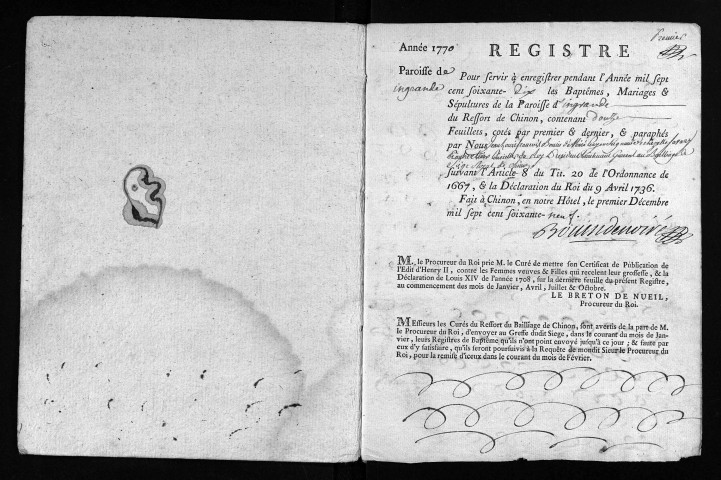 Premier
Année 1770 REGISTRE
Paroisse de
ingrande
Pour servir à enregistrer pendant l'Année mil sept
cent soixante-Dix les Baptêmes, Mariages &
Sépultures de la Paroisse d'ingrande
du Ressort de Chinon, contenant douze
Feuillets, cotés par premier & dernier, & paraphés
par Nous
suivant l'Article 8 du Tit. 20 de l'Ordonnance de
1667, & la Déclaration du Roi du 9 Avril 1736.
Fait à Chinon, en notre Hôtel, le premier Décembre
mil sept cent soixante-neuf.
M. le Procureur du Roi prie M. le Curé de mettre son Certificat de Publication de
l'Edit d'Henry II, contre les Femmes veuves & Filles qui recelent leur grossesse, & la
Déclaration de Louis XIV de l'année 1708, sur la derniere feuille du présent Registre,
au commencement des mois de Janvier, Avril, Juillet & Octobre.
LE BRETON DE NUEIL,
Procureur du Roi.
MEssieurs les Curés du Ressort du Bailliage de Chinon, sont avertis de la part de M.
le Procureur du Roi, d'envoyer au Greffe dudit Siege, dans le courant du mois de Jan-
vier, leurs Registres de Baptême qu'ils n'ont point envoyé jusqu'à ce jour; & faute par
eux d'y satisfaire, qu'ils seront poursuivis à la Requête de mondit Sieur le Procureur du
Roi, pour la remise d'iceux dans le courant du mois de Février.